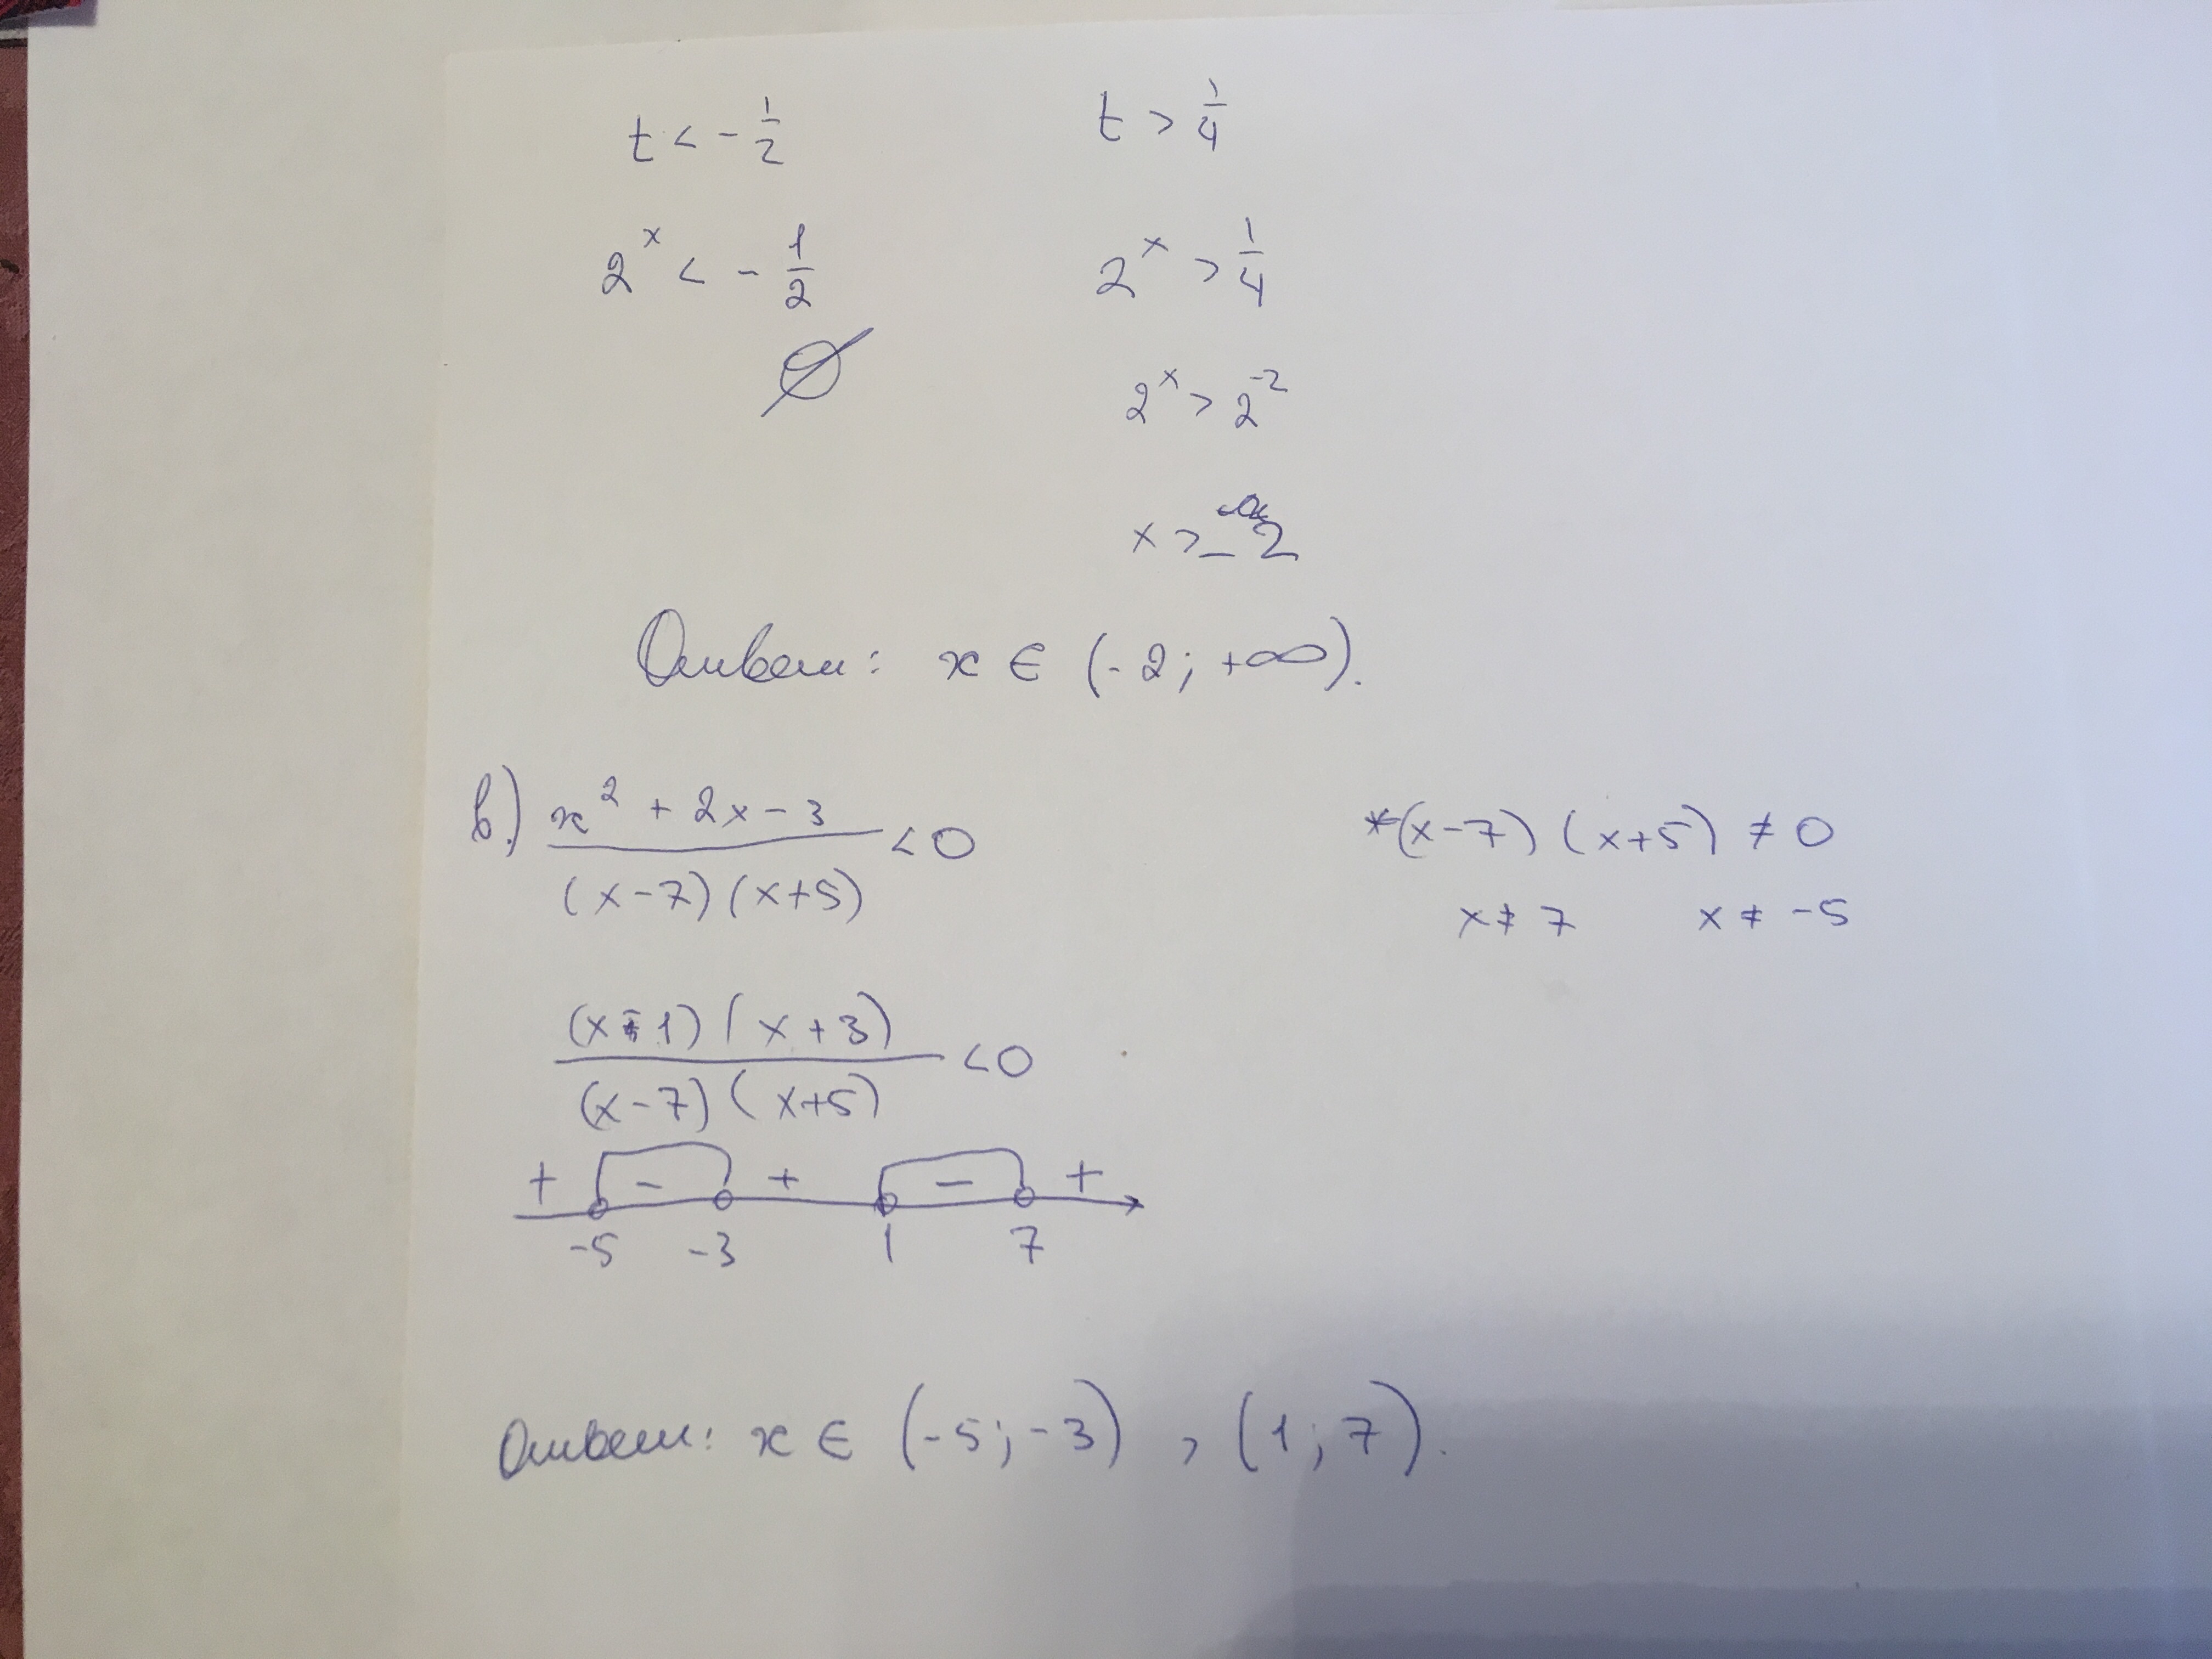 t < -1/2    t > 1/4
2^x < -1/2    2^x > 1/4
∅    2^x > 2^-2
x > -2
Ответ: x ∈ (-2; +∞).
в.) (x^2 + 2x - 3)/((x-7)(x+5)) < 0    *(x-7)(x+5) ≠ 0
x ≠ 7    x ≠ -5
((x-1)(x+3))/((x-7)(x+5)) < 0
+ - + - +
-5 -3 1 7
Ответ: x ∈ (-5; -3) , (1; 7).